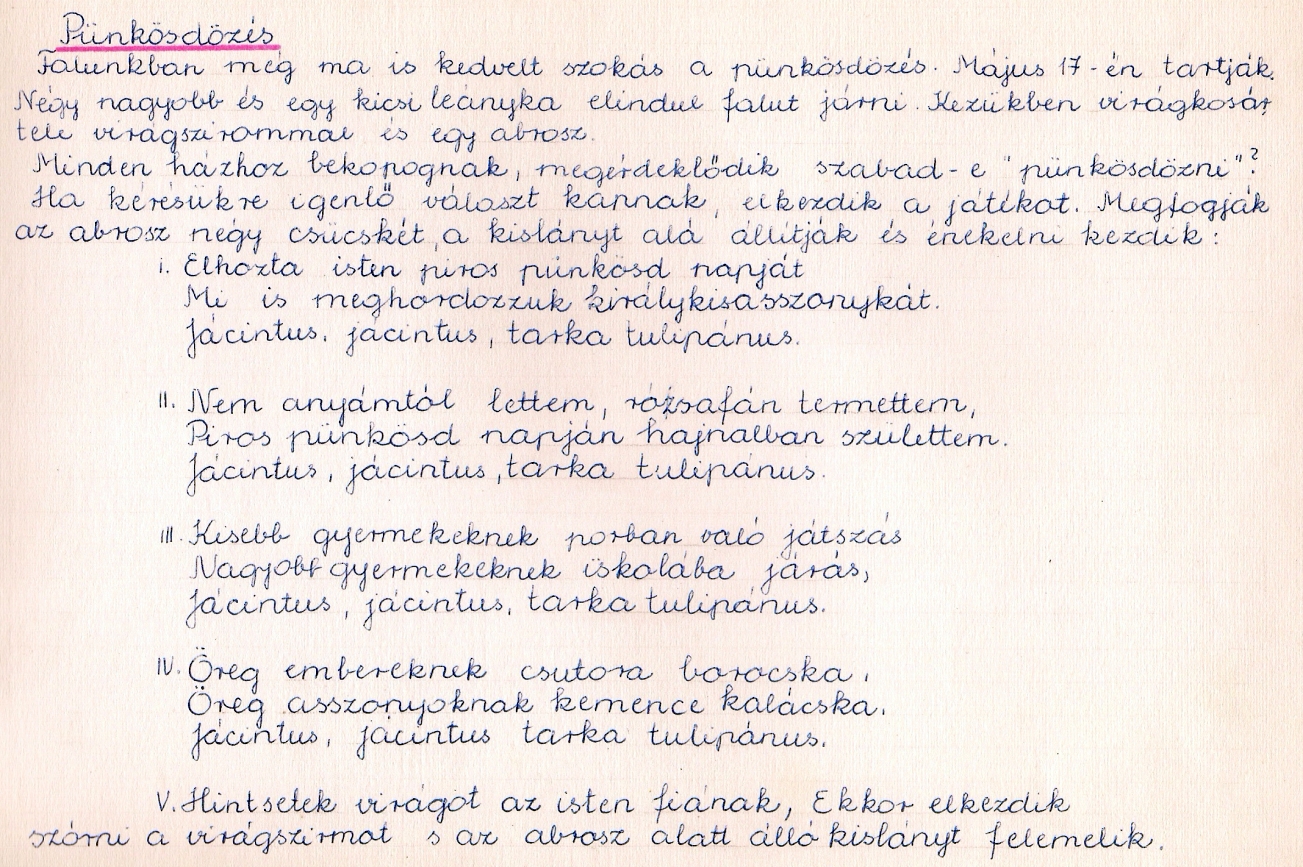 Pünkösdözés
Falunkban még ma is kedvelt szokás a pünkösdözés. Május 17-én tartják.
Négy nagyobb és egy kicsi leányka elindul falut járni. Kezükben virágkosár,
tele virágszirommal és egy abrosz.
Minden házhoz bekopognak, megérdeklődik szabad-e "pünkösdözni"?
Ha kérésükre igenlő választ kapnak, elkezdik a játékot. Megfogják
az abrosz négy csücskét, a kislányt alá állítják és énekelni kezdik:
I. Elhozta isten piros pünkösd napját
Mi is meghordozzuk királykisasszonykát.
Jácintus, jácintus, tarka tulipánus.
II. Nem anyámtól lettem, rózsafán termettem,
Piros pünkösd napján hajnalban születtem.
Jácintus, jácintus, tarka tulipánus.
III. Kisebb gyermekeknek porban való játszás
Nagyobb gyermekeknek iskolába járás,
Jácintus, jácintus, tarka tulipánus.
IV. Öreg embereknek csutora borocska,
Öreg asszonyoknak kemence kalácska.
Jácintus, jácintus tarka tulipánus.
V. Hintsetek virágot az isten fiának, Ekkor elkezdik
szórni a virágszirmot s az abrosz alatt álló kislányt felemelik.